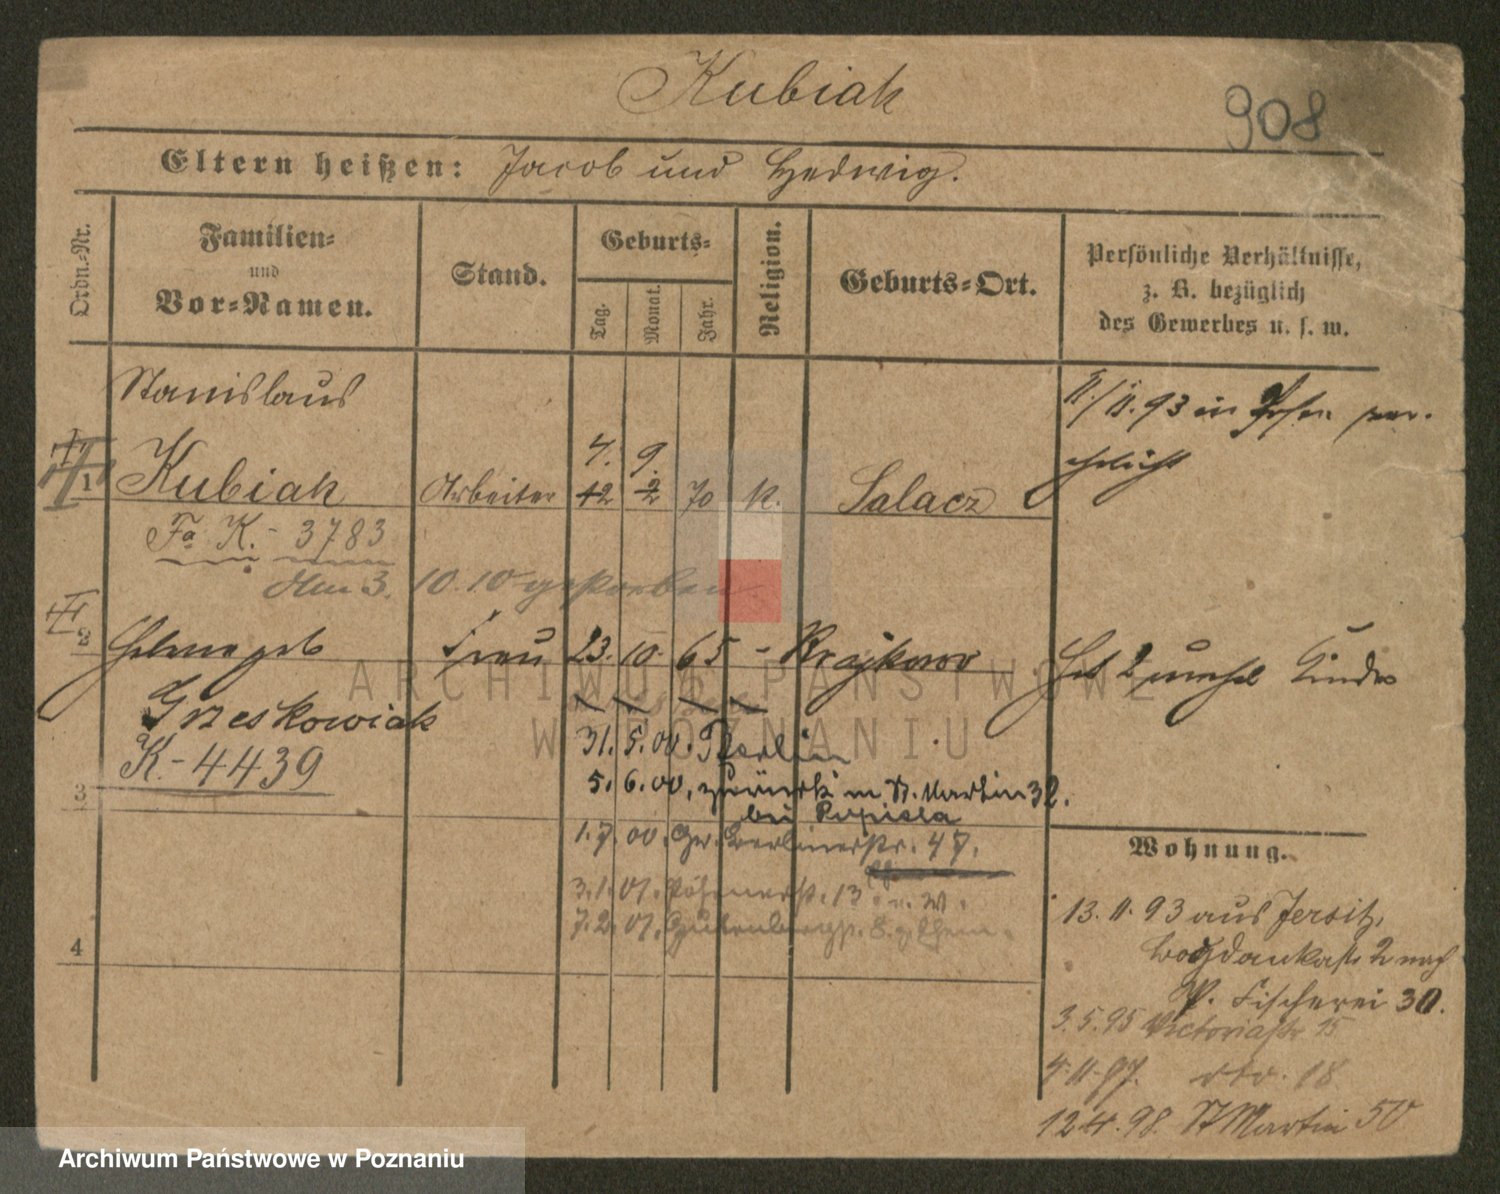 Kubiak
908
Eltern heißen: Jacob und Hedwig.
Ordn.-Nr.
Familien- und Vor-Namen.
Stand.
Geburts-
Tag.
Monat.
Jahr.
Religion.
Geburts-Ort.
Persönliche Verhältnisse,
z. B. bezüglich
des Gewerbes u. s. w.
Stanislaus
11./11. 93 in Posen ver-
ehelicht
7. 9.
1 Kubiak Arbeiter 12 2 70 k. Salacz
Fa K. - 3783
am 3. 10. 10 gestorben
2 Helene geb Frau 23. 10. 65 - Krajkowo Hat 2 unehel Kinder
Grzeskowiak
K.- 4439
31. 5. 00. Berlin
5. 6. 00, zurück n St. Martin 32.
3
bei Rupisla
1. 7. 00. Gr. Berlinerstr. 47.
Wohnung.
3. 1. 01. Posenerstr. 13
7. 2. 01. Gutenbergstr. 8.
4
13. 11. 93 aus Jersitz,
Bogdankastr 2 nach
W. Fischerei 30.
3. 5. 95 Victoriastr 15
4. 11. 97. dto. 18
12 4. 98. St Martin 50
ARCHIWUM PAŃSTWOWE
W POZNANIU
Archiwum Państwowe w Poznaniu